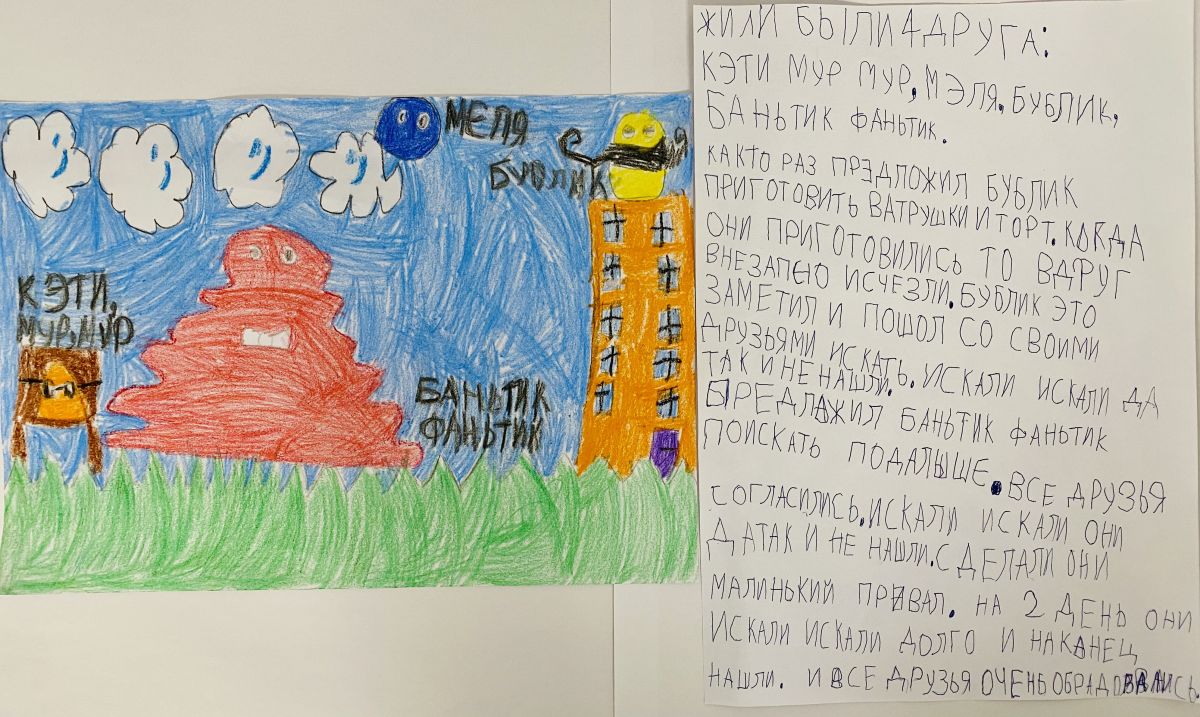 МЕЛЯ
БУБЛИК
КЭТИ,
МУР,МУР
БАНЬТИК
ФАНЬТИК
ЖИЛИ БЫЛИ 4 ДРУГА:
КЭТИ МУР МУР, МЭЛЯ. БУБЛИК,
БАНЬТИК ФАНЬТИК.
КАКТО РАЗ ПРЭДЛОЖИЛ БУБЛИК
ПРИГОТОВИТЬ ВАТРУШКИ И ТОРТ. КОКДА
ОНИ ПРИГОТОВИЛИСЬ ТО ВДРУГ
ВНЕЗАПНО ИСЧЕЗЛИ. БУБЛИК ЭТО
ЗАМЕТИЛ И ПОШОЛ СО СВОИМИ
ДРУЗЬЯМИ ИСКАТЬ. ИСКАЛИ ИСКАЛИ ДА
ТАК И НЕ НАШЛИ.
ПРЕДЛАЖИЛ БАНЬТИК ФАНЬТИК
ПОИСКАТЬ ПОДАЛЬШЕ. ВСЕ ДРУЗЬЯ
СОГЛАСИЛИСЬ. ИСКАЛИ ИСКАЛИ ОНИ
ДАТАК И НЕ НАШЛИ. СДЕЛАЛИ ОНИ
МАЛИНЬКИЙ ПРИВАЛ. НА 2 ДЕНЬ ОНИ
ИСКАЛИ ИСКАЛИ ДОЛГО И НАКАНЕЦ
НАШЛИ. И ВСЕ ДРУЗЬЯ ОЧЕНЬ ОБРАДОВАЛИСЬ.